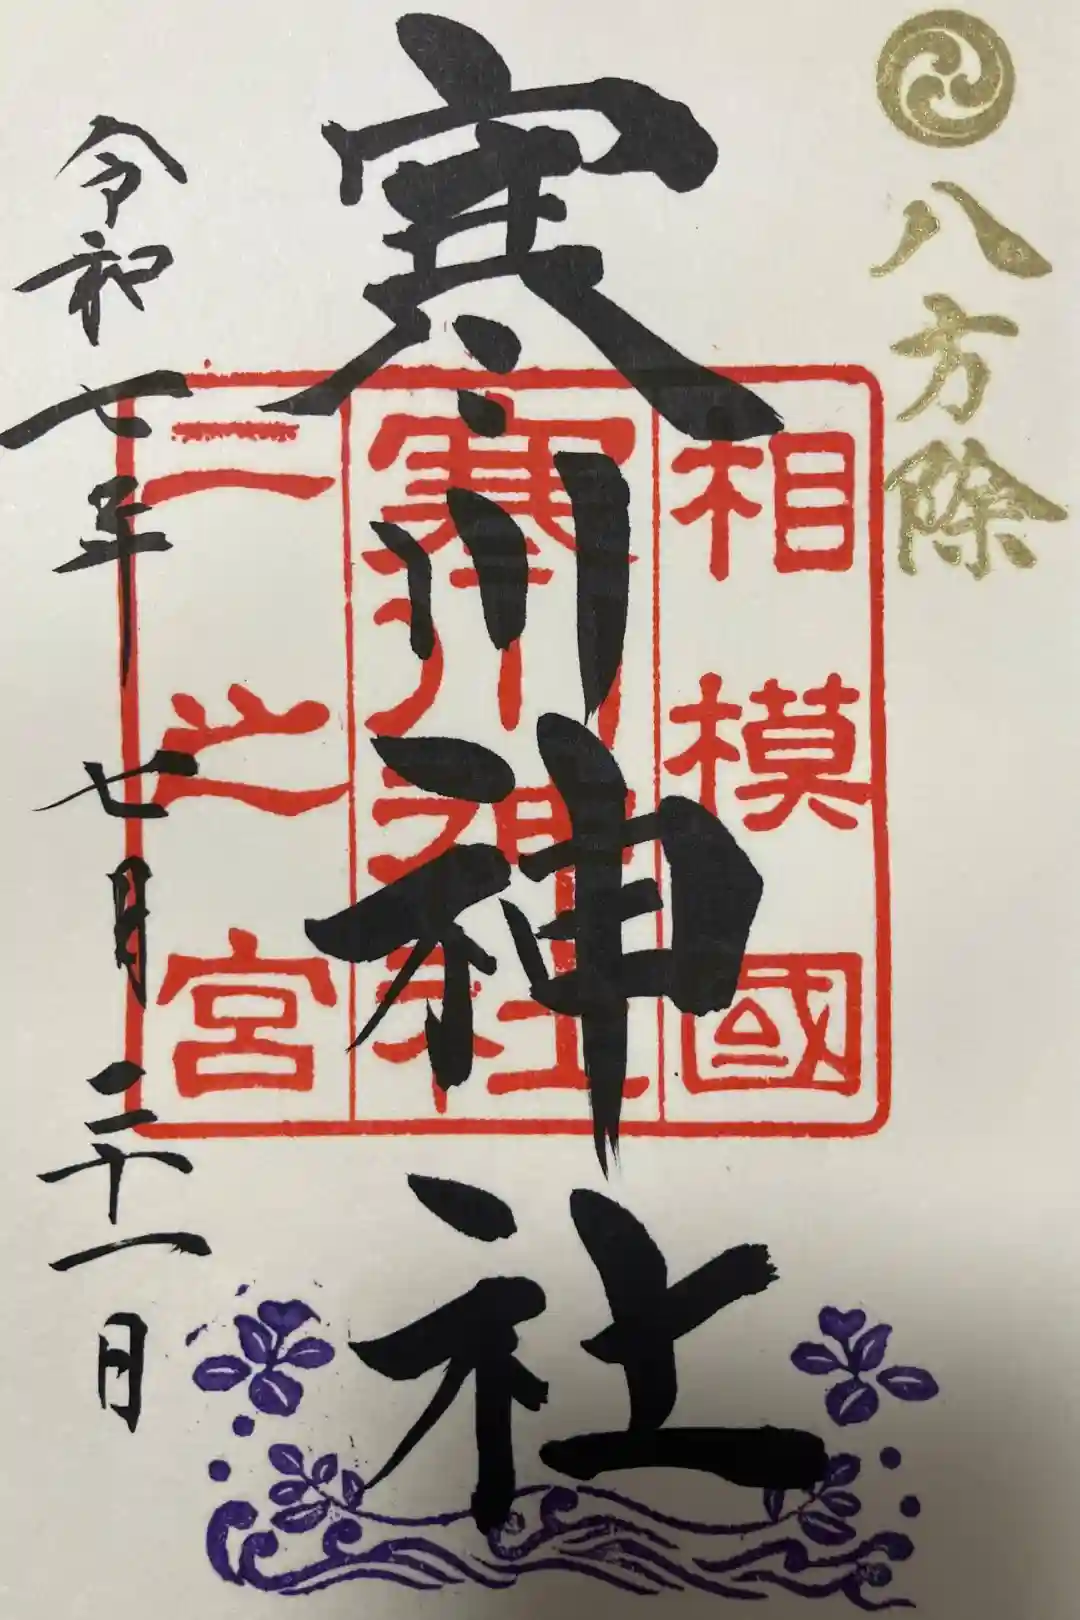 八方除
相模國
寒川神社
二之宮
寒川神社
令和七年七月二十一日